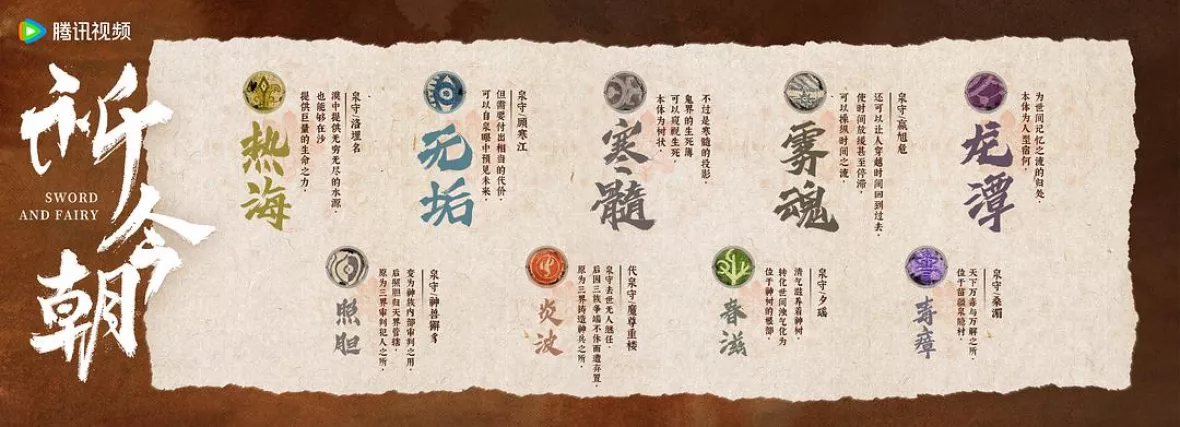 腾讯视频
祈今朝
SWORD
AND FAIRY
热海
泉守/洛埋名
提供巨量的生命之力，
也能够在沙
漠中提供无穷无尽的水源。
无垢
泉守/顾寒江
可以自泉眼中预见未来，
但需要付出相当的代价。
寒髓
本体为树状，
可以窥视生死，
鬼界的生死簿
不过是寒髓的投影。
雾魂
泉守/嬴旭危
可以操纵时间之流，
使时间放缓甚至停滞，
还可以让人穿越时间回到过去。
龙潭
本体为人型宿何，
为世间记忆之流的归处。
照胆
泉守/神兽獬豸
原为三界审判犯人之所，
后照胆归天界管辖，
变为神族内部审判之用。
炎波
代泉守/魔尊重楼
原为三界铸造神兵之所，
后因三族争端不休而遭弃置，
泉守去世无人继任。
春滋
泉守/夕瑶
位于神树的根部，
转化世间浊气化为
清气滋养着神树。
毒瘴
泉守/桑湄
位于苗疆泉隐村，
天下万毒与万解之所。